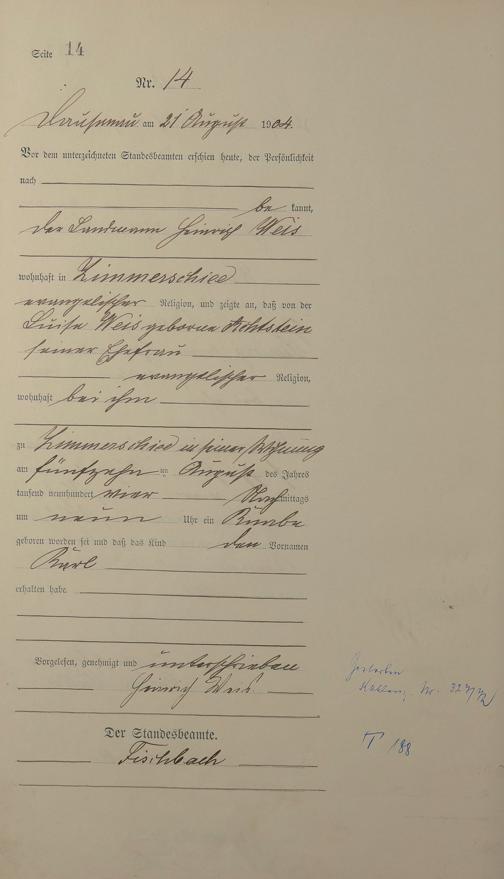 Seite 14
Nr. 14
Dausenau am 21 August 1904.
Vor dem unterzeichneten Standesbeamten erschien heute, der Persönlichkeit
nach
be kannt,
der Landmann Heinrich Weis
wohnhaft in Zimmerschied
evangelischer Religion, und zeigte an, daß von der
Luise Weis geborne
seiner Ehefrau
evangelischer Religion,
wohnhaft bei ihm
zu Zimmerschied in seiner Wohnung
am fünfzehn ten August des Jahres
tausend neunhundert vier Nachmittags
um neun Uhr ein Knabe
geboren worden sei und daß das Kind den Vornamen
Karl
erhalten habe.
Vorgelesen, genehmigt und unterschrieben
Heinrich Weis
Der Standesbeamte.
Fischbach
Gestorben
Nr. 327/72
188